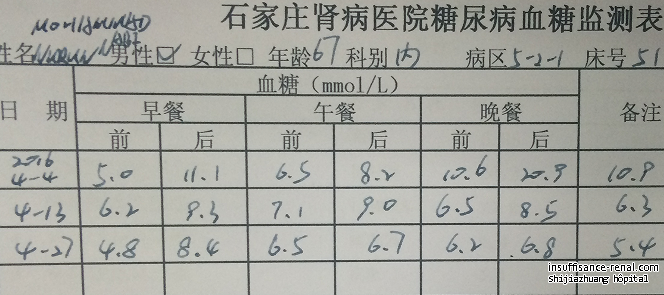 石家庄肾病医院糖尿病血糖监测表
姓名 男性☑ 女性□ 年龄67 科别内 病区5-2-1 床号51
日 期 血糖（mmol/L） 备注
早餐 午餐 晚餐
前 后 前 后 前 后
2016
4-4 5.0 11.1 6.5 8.2 10.6 20.9 10.9
4-13 6.2 9.3 7.1 9.0 6.5 8.5 6.3
4-27 4.8 8.4 6.5 6.7 6.2 6.8 5.4
insuffisance-renal.com
Shijiazhuang hôpital